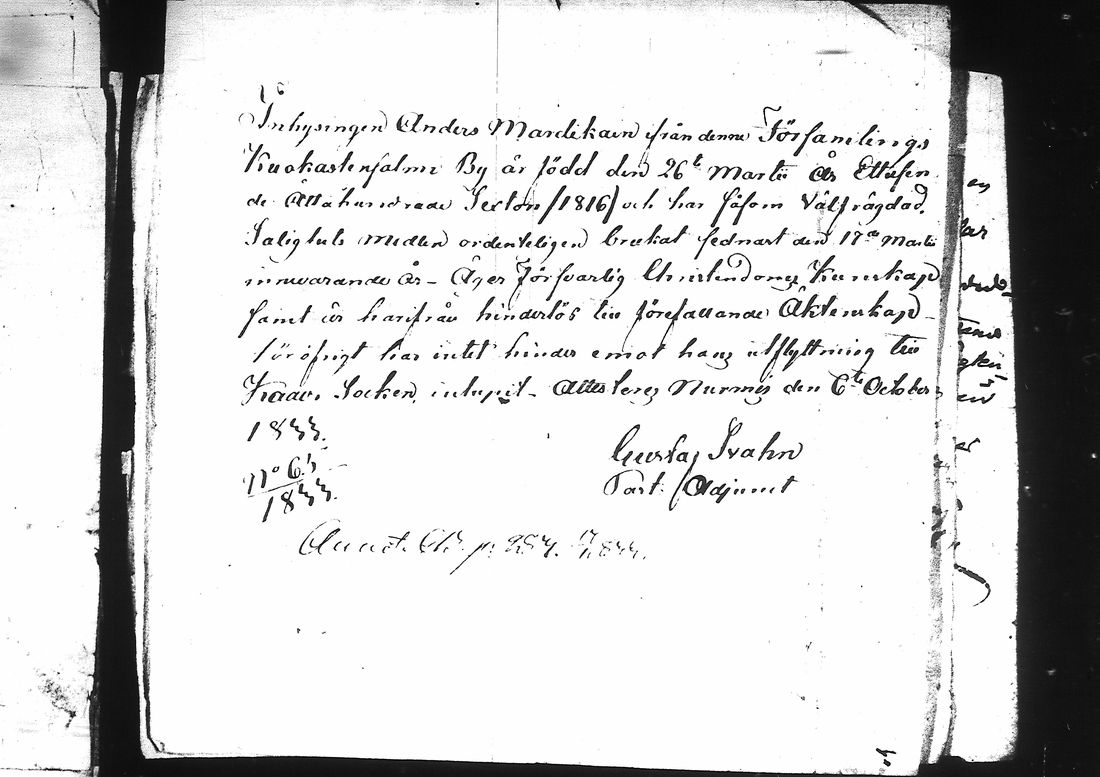 Inhysingen Anders Mardikain från denna Församlings
Kuokastensalmi By är född den 26te Martii År Ettusen
de Åttahundrade Sexton /1816/ och har såsom Välfrägdad,
Salighets Medlen ordenteligen brukat sednast den 17de Martii
innevarande År – Äger Försvarlig Christendoms Kunskap
samt är härifrån hinderlös till förefallande Äktenskap –
för öfrigt har intet hinder emot hans utflyttning till
Socken, inlupit – Attesteras Nurmis den 6te October
1833.
No 65
1833.
Gustaf Svahn
Past. Adjunct
Annot. p.